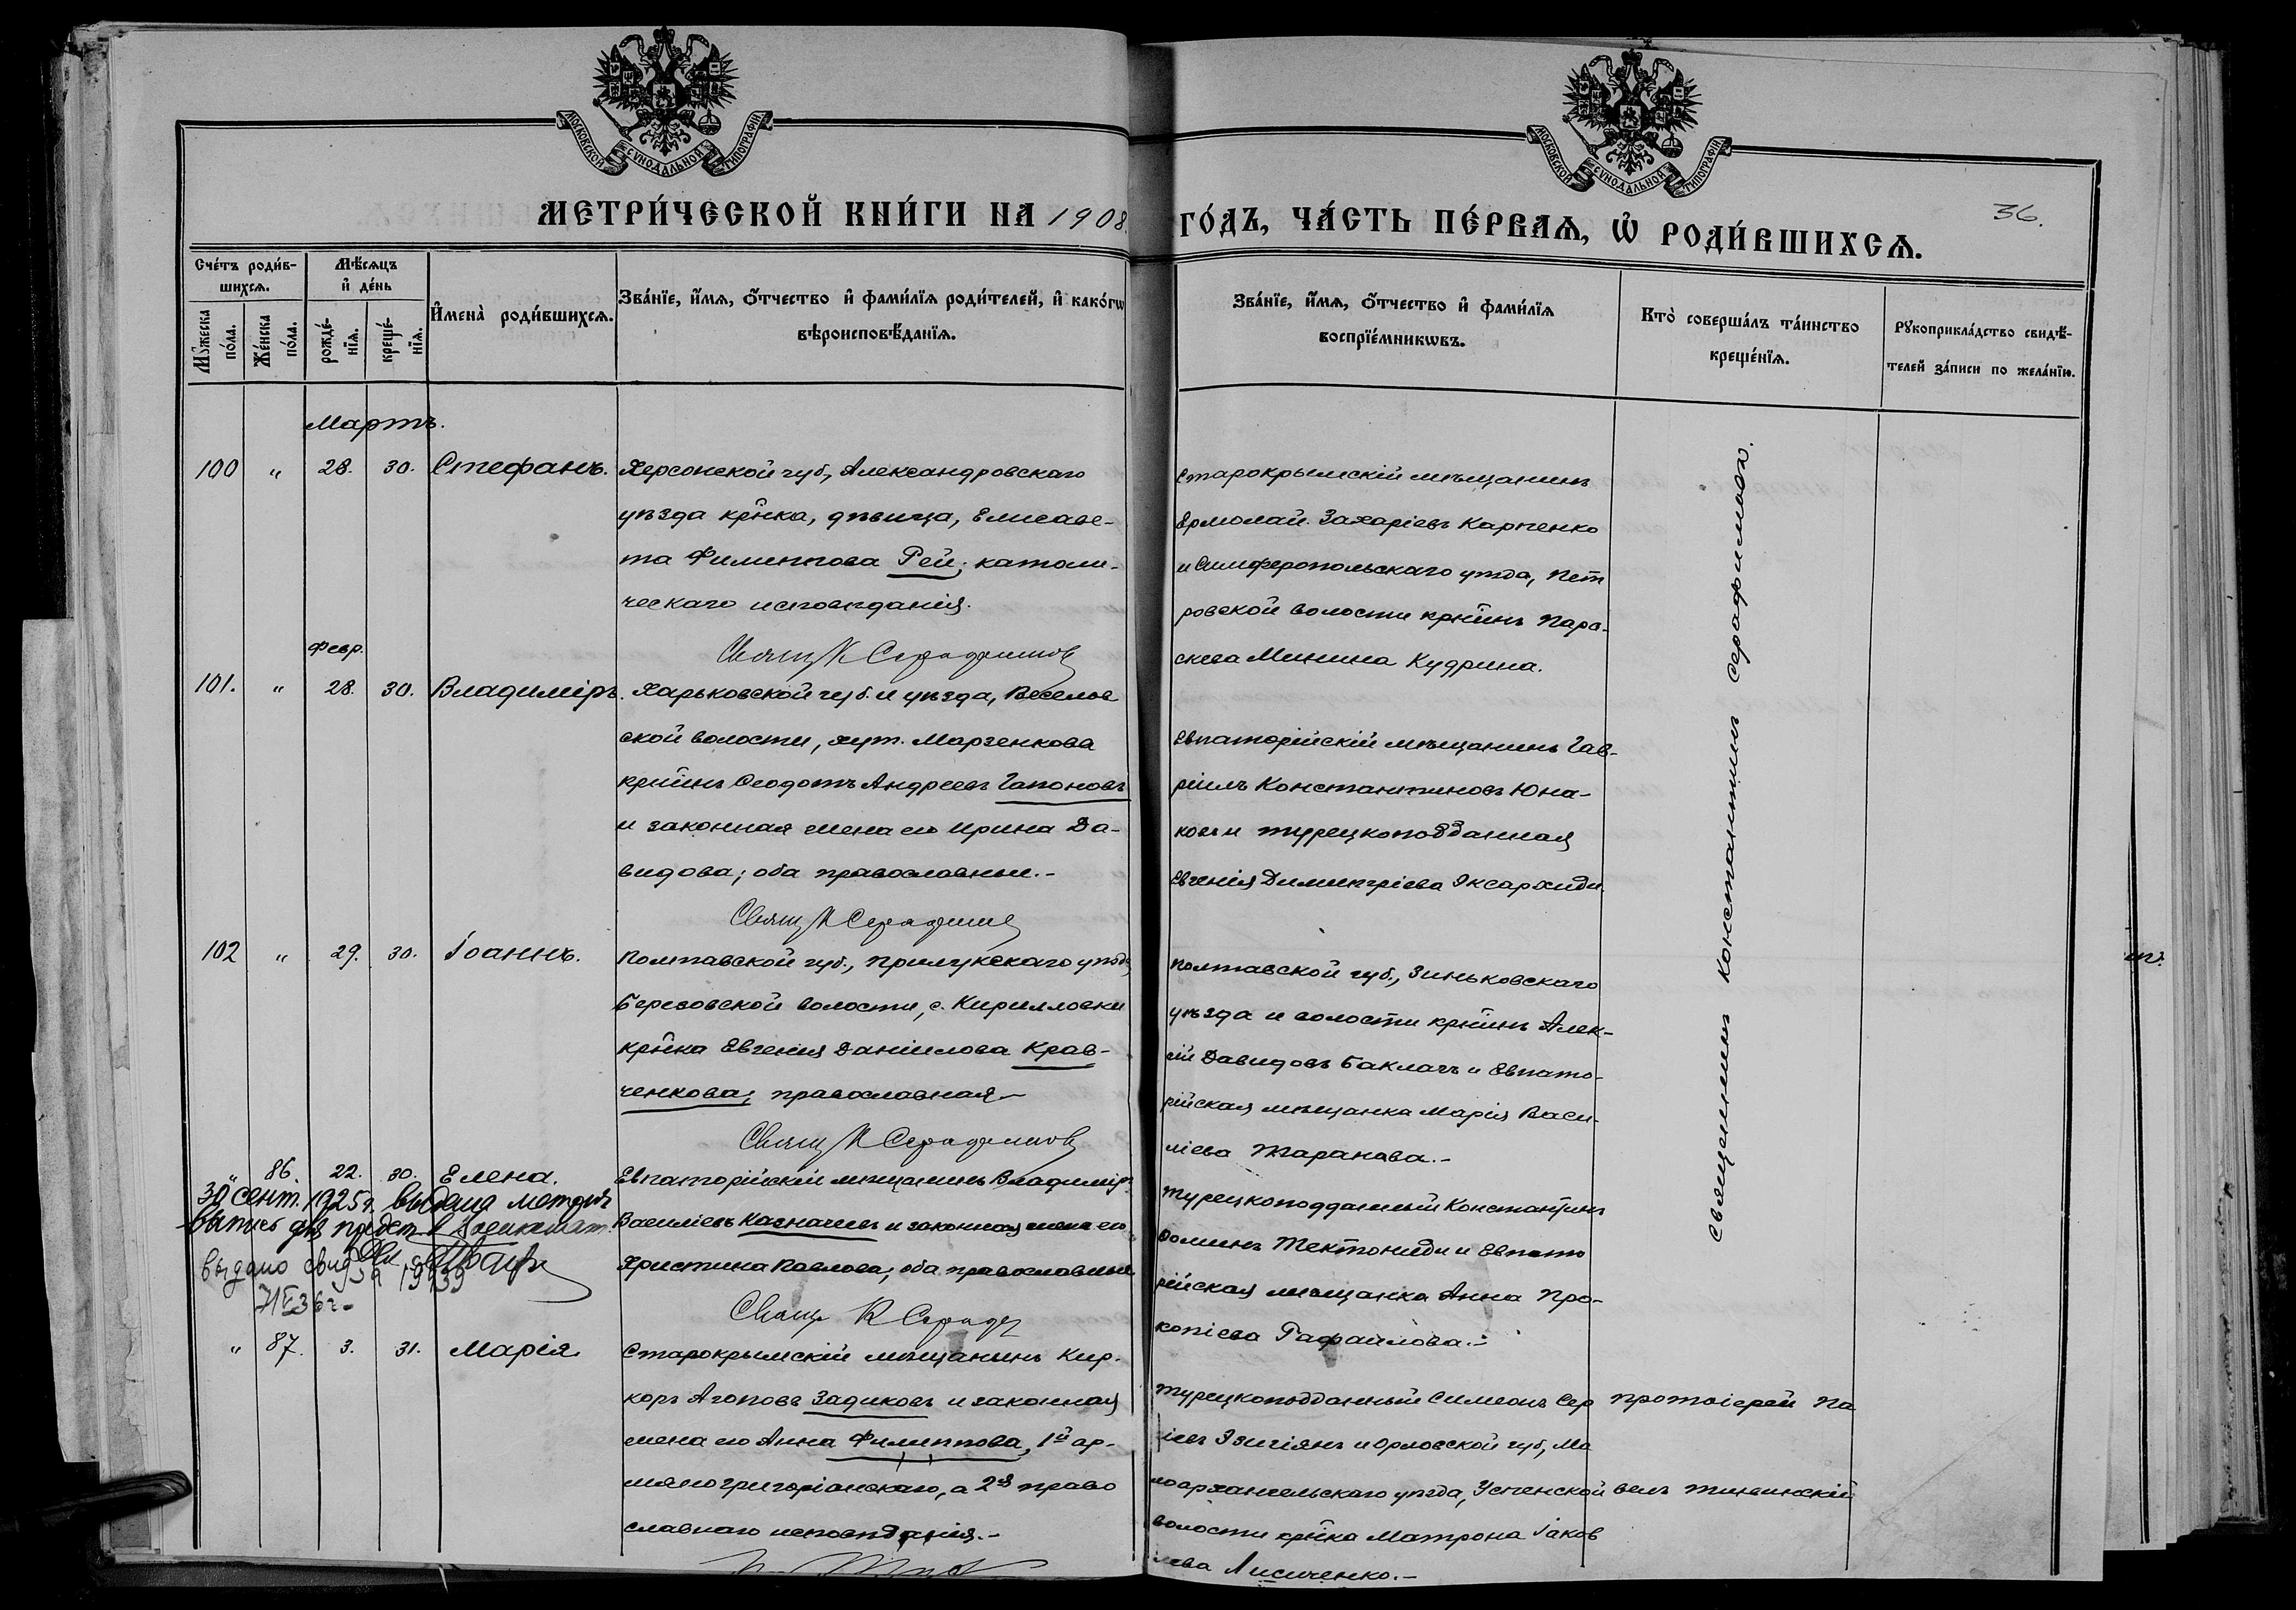 МОСКОВСКОЙ СѴНОДАЛЬНОЙ ТИПОГРАФІИ
МОСКОВСКОЙ СѴНОДАЛЬНОЙ ТИПОГРАФІИ
МЕТРИ́ЧЕСКОЙ КНИ́ГИ НА 1908
ГО́ДЪ, ЧА́СТЬ ПЕ́РВАѦ, Ѡ РОДИ́ВШИХСѦ.
36.
Сче́тъ роди́в-
шихсѧ.
Мꙋ́жеска
по́ла.
Же́нска
по́ла.
Мѣ́сѧцъ
и҆ де́нь
рожде́-
нїѧ.
креще́-
нїѧ.
И҆мена̀ роди́вшихсѧ.
Зва́нїе, и҆́мѧ, ѻ҆́тчество и҆ фами́лїѧ роди́телей, и҆ како́гѡ
вѣроисповѣ́данїѧ.
Зва́нїе, и҆́мѧ, ѻ҆́тчество и҆ фами́лїѧ
воспрїе́мникѡвъ.
Кто̀ соверша́лъ та́инство
креще́нїѧ.
Рꙋкоприкла́дство свидѣ́-
телей за́писи по жела́нїю.
Мартъ.
100 " 28. 30. Стефанъ.
Херсонской губ., Александровскаго
уѣзда кр̃нка, дѣвица, Елисаве-
та Филиппова Рей; католи-
ческаго исповѣданія.
Свящ К Серафимов
Старокрымскій мѣщанинъ
Ермолай Захаріевъ Карпенко
и Симферопольскаго уѣзда, Пет
ровской волости кр̃нинъ Пара-
скева Минина Кудрина.
Февр.
101. " 28. 30. Владиміръ.
Харьковской губ. и уѣзда, Веселов
ской волости, хут. Марзенкова
кр̃нинъ Ѳеодотъ Андреевъ Гапоновъ
и законная жена его Ирина Да-
видова; оба православные.-
Свящ К Серафимов
Евпаторійскій мѣщанинъ Гав-
ріилъ Константиновъ Юна-
ковъ и турецкоподданная
Евгенія Димитріева Эксархиди.
102 " 29. 30. Іоаннъ.
Полтавской губ., Прилукскаго уѣзда
Березовской волости, с. Кирилловки
кр̃нка Евгенія Даніилова Крав-
ченкова; православная.-
Свящ К Серафимов
Полтавской губ., Зиньковскаго
уѣзда и волости кр̃нинъ Алек-
сій Давидовъ Баклагъ и Евпато-
рійская мѣщанка Марія Васи-
ліева Таранова.-
" 86. 22. 30. Елена.
30 сент. 1925 г. выдана метрич
выпись для предст. в
выдано свид 1939
Евпаторійскій мѣщанинъ Владиміръ
Василіевъ Казначеевъ и законная жена его
Христина Павлова; оба православные
Свящ К Сераф
Турецкоподданный Константинъ
Ѳоминъ Тектониди и Евпато
рійская мѣщанка Анна Про-
копіева Рафаилова.-
Священникъ Константинъ Серафимовъ.
" 87. 3. 31. Марія
Старокрымскій мѣщанинъ Кир-
коръ Агоповъ Задиковъ и законная
жена его Анна Филиппова, 1й ар-
мяногригоріанскаго, а 2я право
славнаго исповѣданія.-
Турецкоподданный Симеонъ Сер
гіевъ Эзигіянъ и Орловской губ., Ма
лоархангельскаго уѣзда, Успенской
волости кр̃нка Матрона Іаков
лева Лисиченко.-
Протоіерей Па
велъ Тишинскій